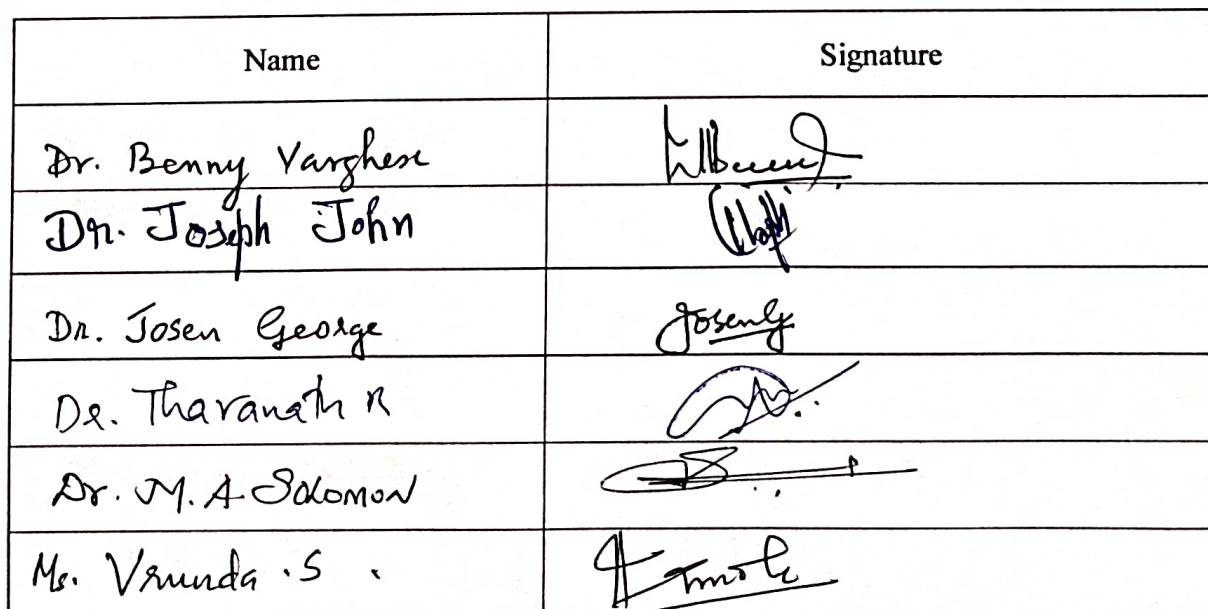 Name Signature
Dr. Benny Varghese
Dr. Joseph John
Dr. Josen George Joseng
Dr. Tharanath R
Dr. M. A Solomon
Ms. Vrunda .S .